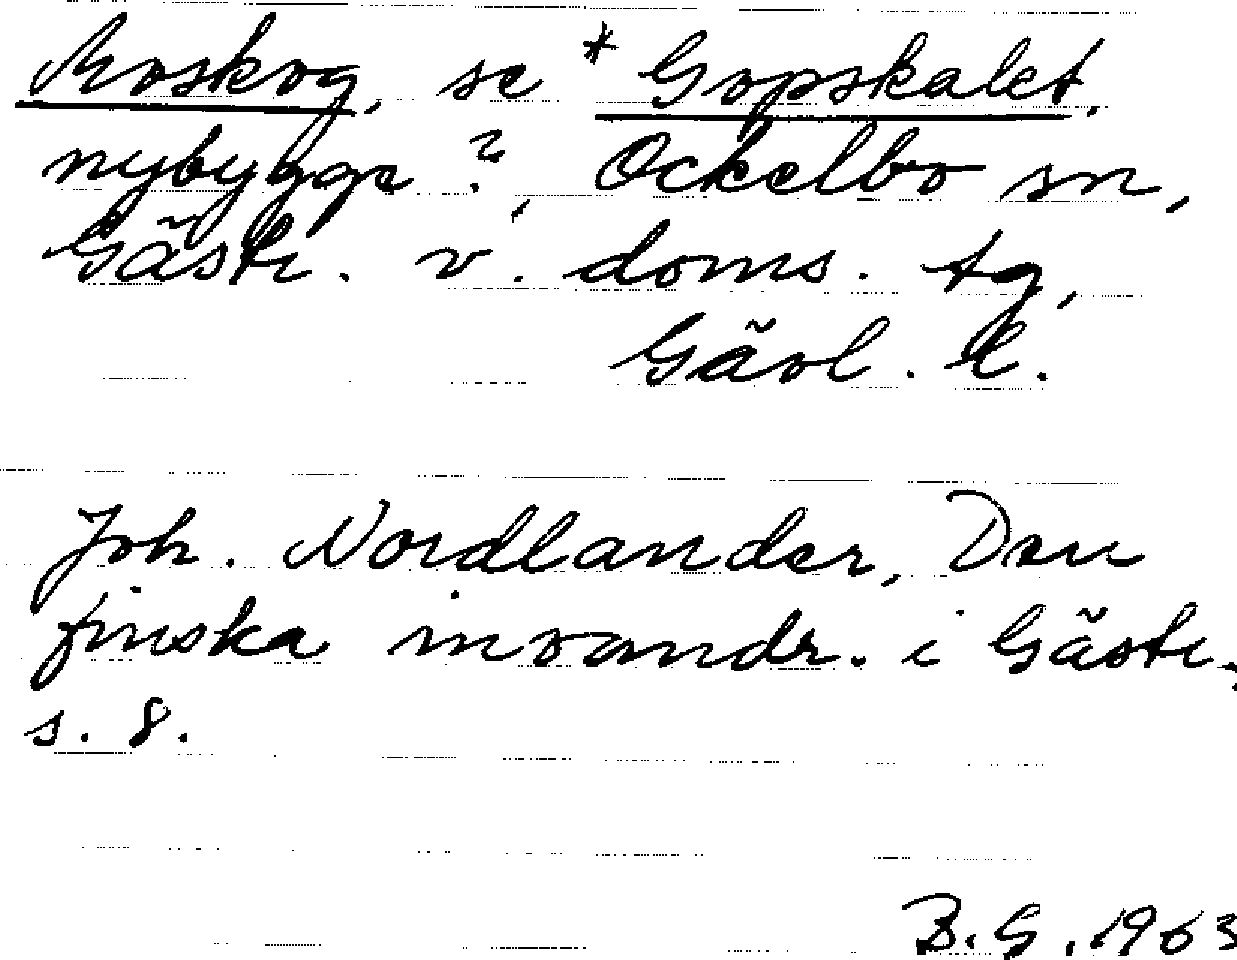 Moskog, se *Gopskalet,
nybygge?, Ockelbo sn,
Gästr. v. doms. tg,
Gävl. l.
Joh. Nordlander, Den
finska invandr. i Gästr.,
s. 8.
B.G. 1963